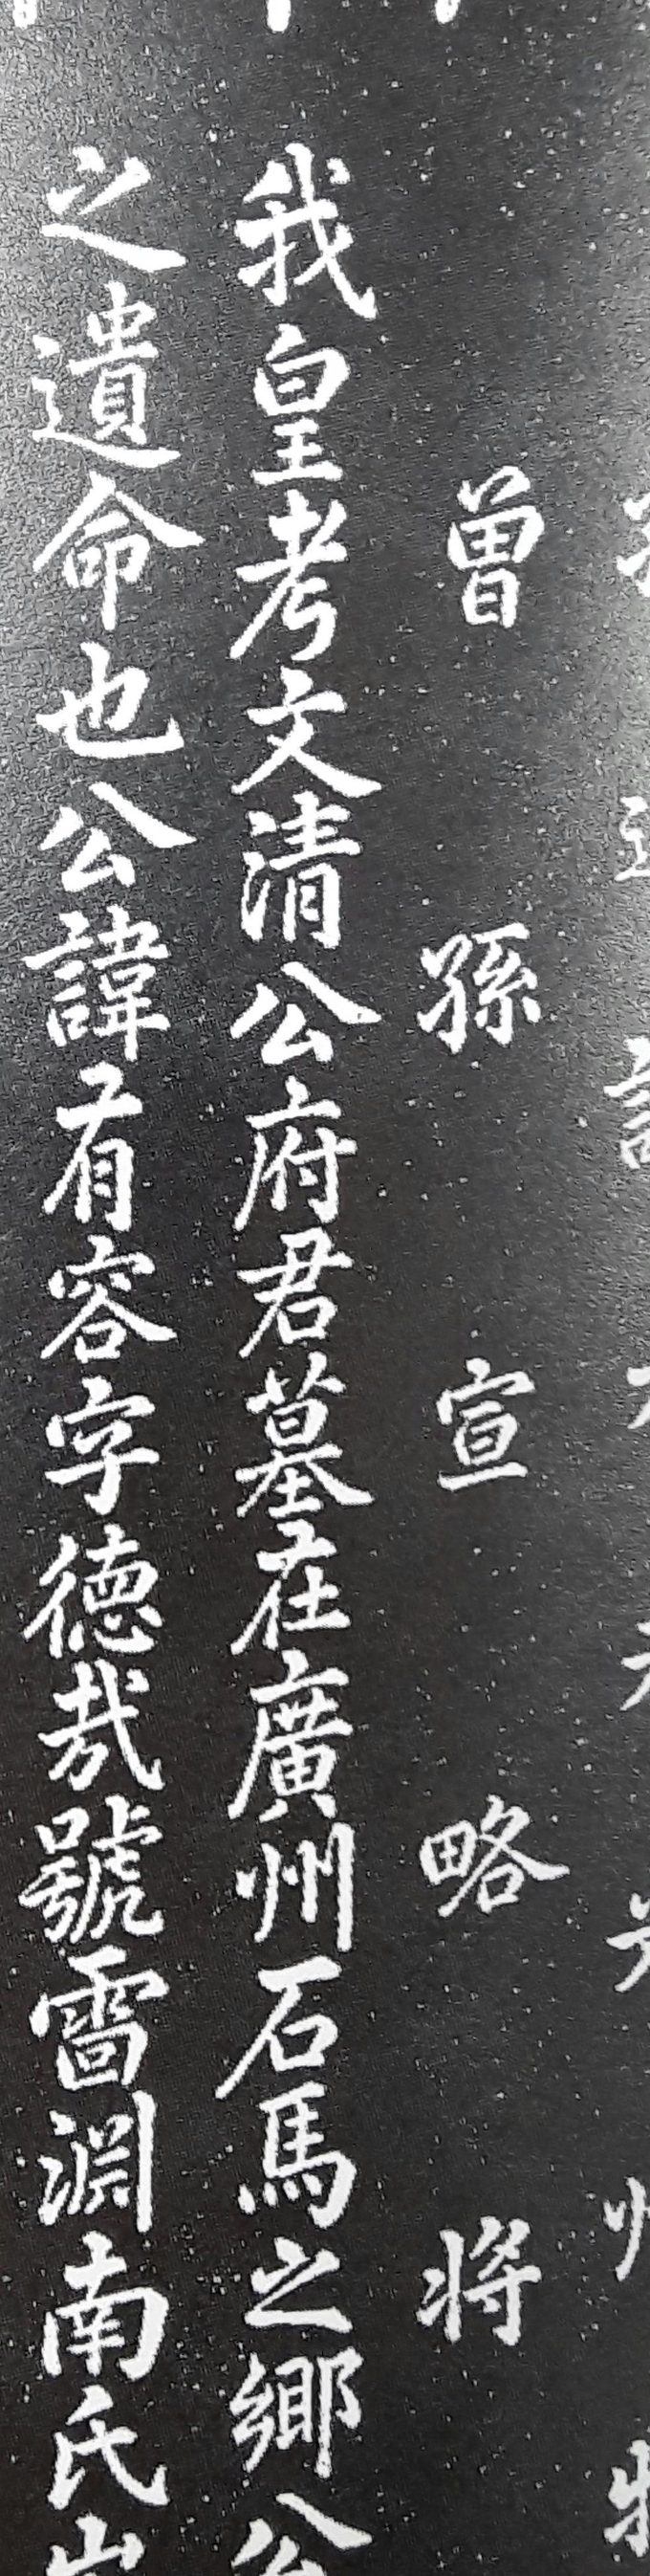 曾孫宣略將
我皇考文清公府君墓在廣州石馬之鄉公
之遺命也公諱有容字德哉號雷淵南氏